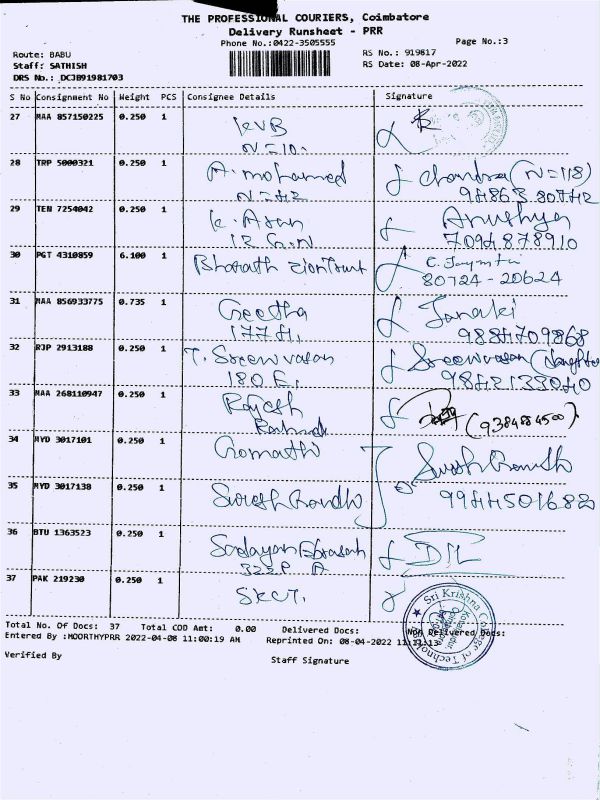 THE PROFESSIONAL COURIERS, Coimbatore
Delivery Runsheet - PRR
Phone No.:0422-3505555
Page No.:3
Route: BABU
RS No.: 919817
Staff: SATHISH
RS Date: 08-Apr-2022
DRS No.: DCJB91981703
S No Consignment No Weight PCS Consignee Details Signature
27 MAA 857150225 0.250 1 KVB
28 TRP 5000321 0.250 1 A. mohamed Chandra (N=118)
N=42 94863 80742
29 TEN 7254042 0.250 1 K. Aran Anushya
12 G.N 7094878910
30 PGT 4310859 6.100 1 Bharath Zion Trust C. Jayanthi
80724-20624
31 MAA 856933775 0.735 1 Geetha Janaki
177 H, 9884709868
32 RJP 2913188 0.250 1 T. Sreenivasan Sreenivasan (daughter
180 E, 9842133040
33 MAA 268110947 0.250 1 Rajesh (9384884500)
34 MYD 3017101 0.250 1 Gomathi Suresh Gandhi
35 MYD 3017138 0.250 1 Suresh Gandhi 9944501682
36 BTU 1363523 0.250 1
322P A
37 PAK 219230 0.250 1 SKCT.
Sri Krishna College of Technology
Total No. Of Docs: 37 Total COD Amt: 0.00 Delivered Docs: Non Delivered Docs:
Entered By :MOORTHYPRR 2022-04-08 11:00:19 AM Reprinted On: 08-04-2022 11:11:13
Verified By
Staff Signature